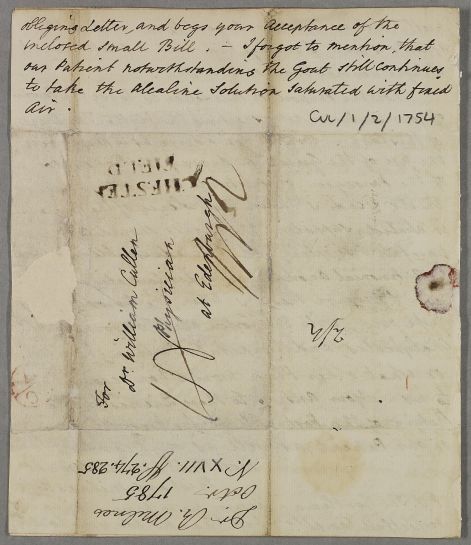 obliging Letter, and begs your Acceptance of the
inclosed Small Bill. – I forgot to mention, that
our Patient notwithstanding the Gout still continues
to take the Alcaline Solution Saturated with fixed
Air.
Cul/1/2/1754
CHESTER
FIELD
For
Dr. William Cullen
Physician
at Edenburgh
2/2
Dr. R. Milnes
Octr. 1785
N. XVII. ff. 274. 285